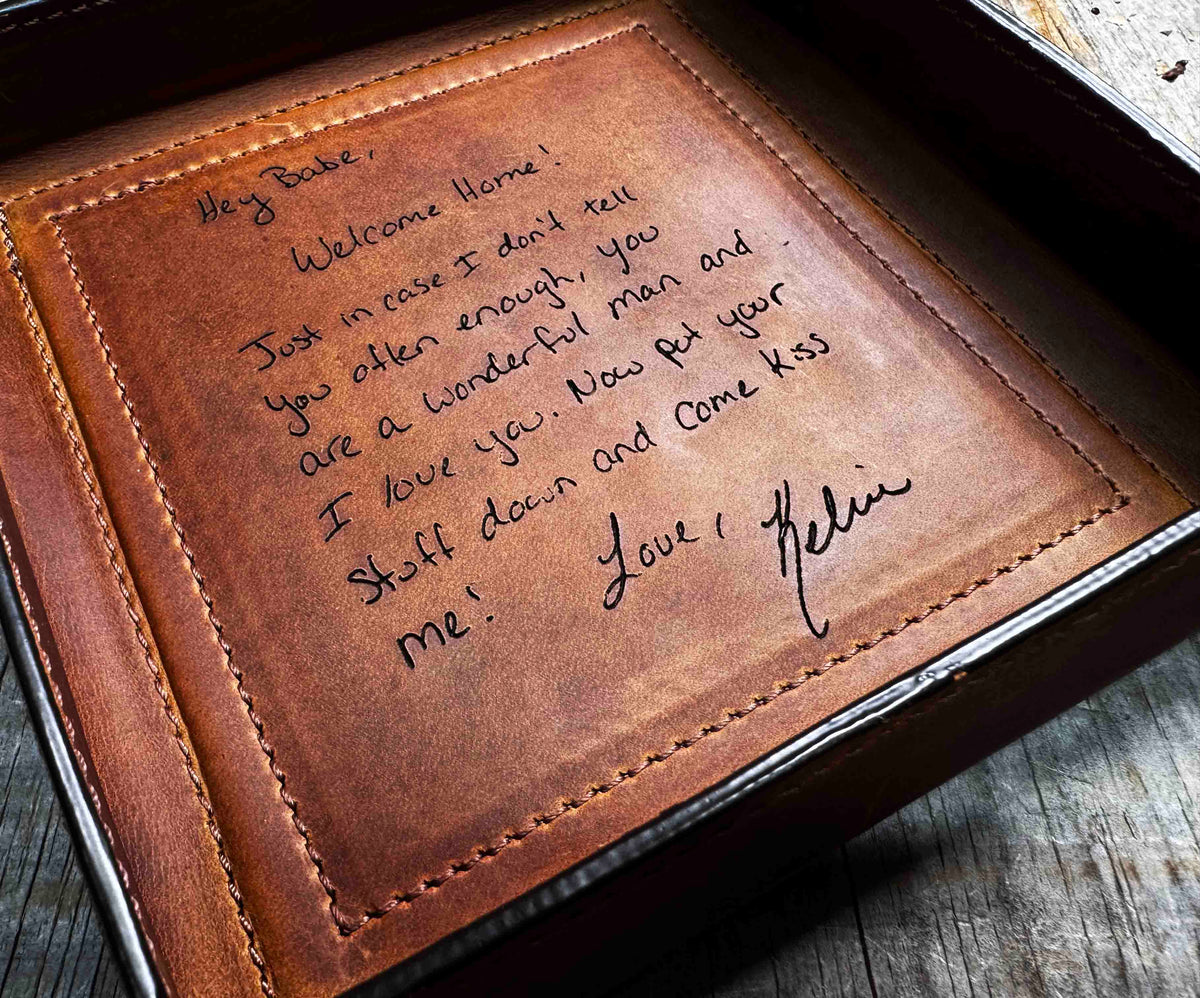 Hey Babe,
Welcome Home!
Just in case I don't tell
you often enough, you
are a wonderful man and
I love you. Now put your
stuff down and come kiss
me!
Love, Kelvie